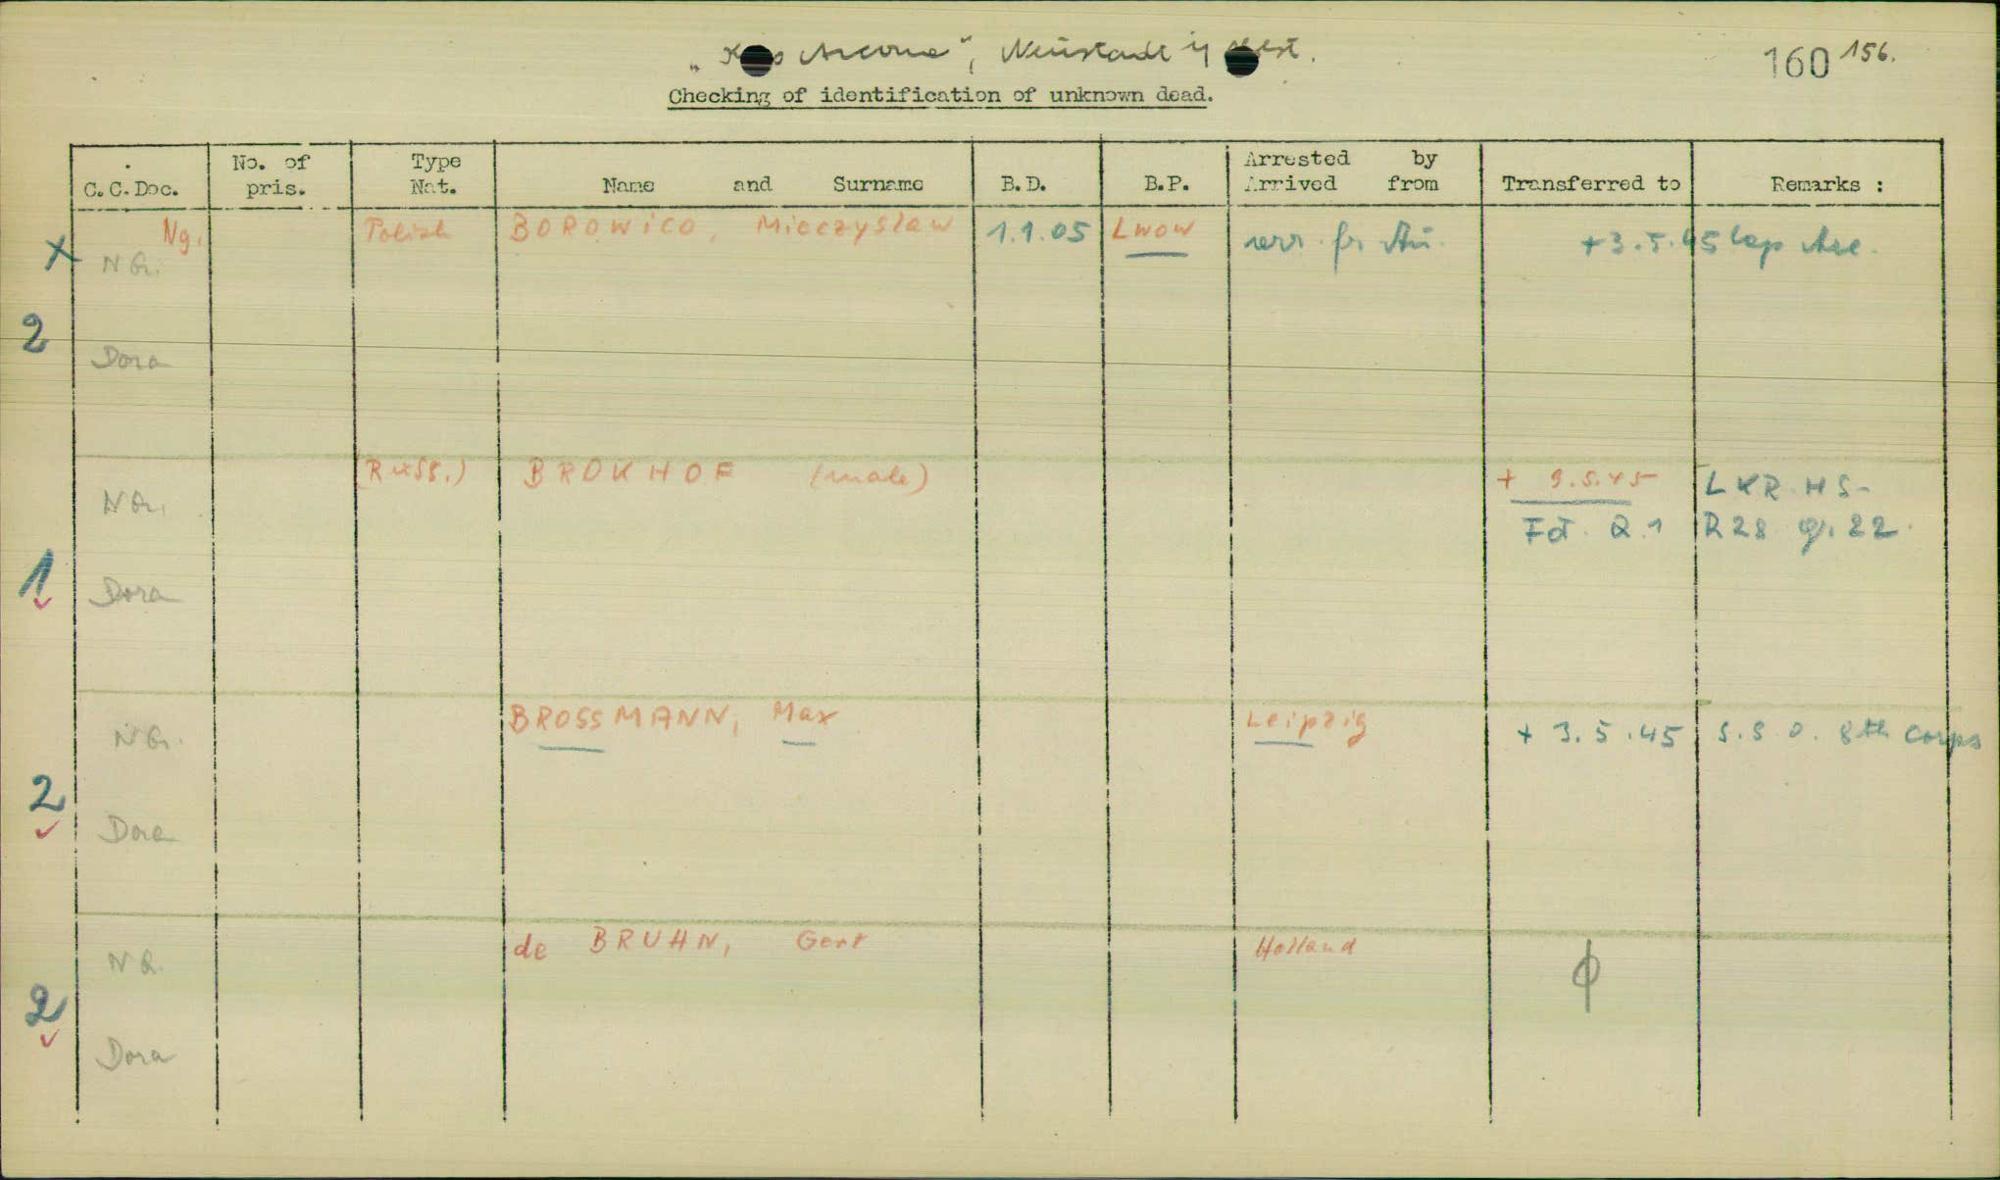 Arcona", Neustadt
160 156.
Checking of identification of unknown dead.
C.C.Doc. No. of pris. Type Nat. Name and Surname B.D. B.P. Arrested by Arrived from Transferred to Remarks :
Ng. Polish BOROWICO, Mieczyslaw 1.1.05 Lwow arr. fr. Au. +3.5.45 Cap Arc.
x NG.
2 Dora
NG. (Russ.) BROKHOF (male) + 9.5.45 LKR HS-
Fd. Q.1 R28 22.
1 Dora
NG. BROSSMANN, Max Leipzig + 3.5.45 S.S.O. 8th Corps
2 Dora
NG. de BRUHN, Gert Holland
2 Dora